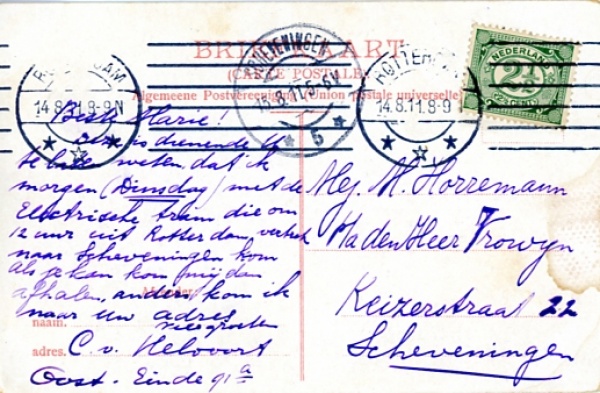 BRIEFKAART
(CARTE POSTALE)
Algemeene Postvereeniging (Union postale universelle)
ROTTERDAM
14.8.11.8-9N
SCHEVENINGEN
15.8.11.5-6V
5
ROTTERDAM
14.8.11.8-9
NEDERLAND
2½
CENT
Beste Marie!
Deze is dienende U
te laten weten, dat ik
morgen (Dinsdag) met de
Electrische tram die om
12 uur uit Rotterdam, vertrek
naar Scheveningen kom
Als je kan kom mij dan
afhalen, anders kom ik
naar uw adres
vlegroeten
naam.
adres. C. v. Helvoort
Oost-Einde 91a
Mej. M. Horremann
P/a den Heer Vrowyn
Keizerstraat 22
Scheveningen